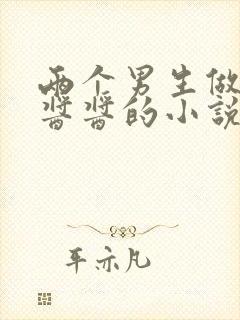 两个男生做
酱酱的小说
车亦凡